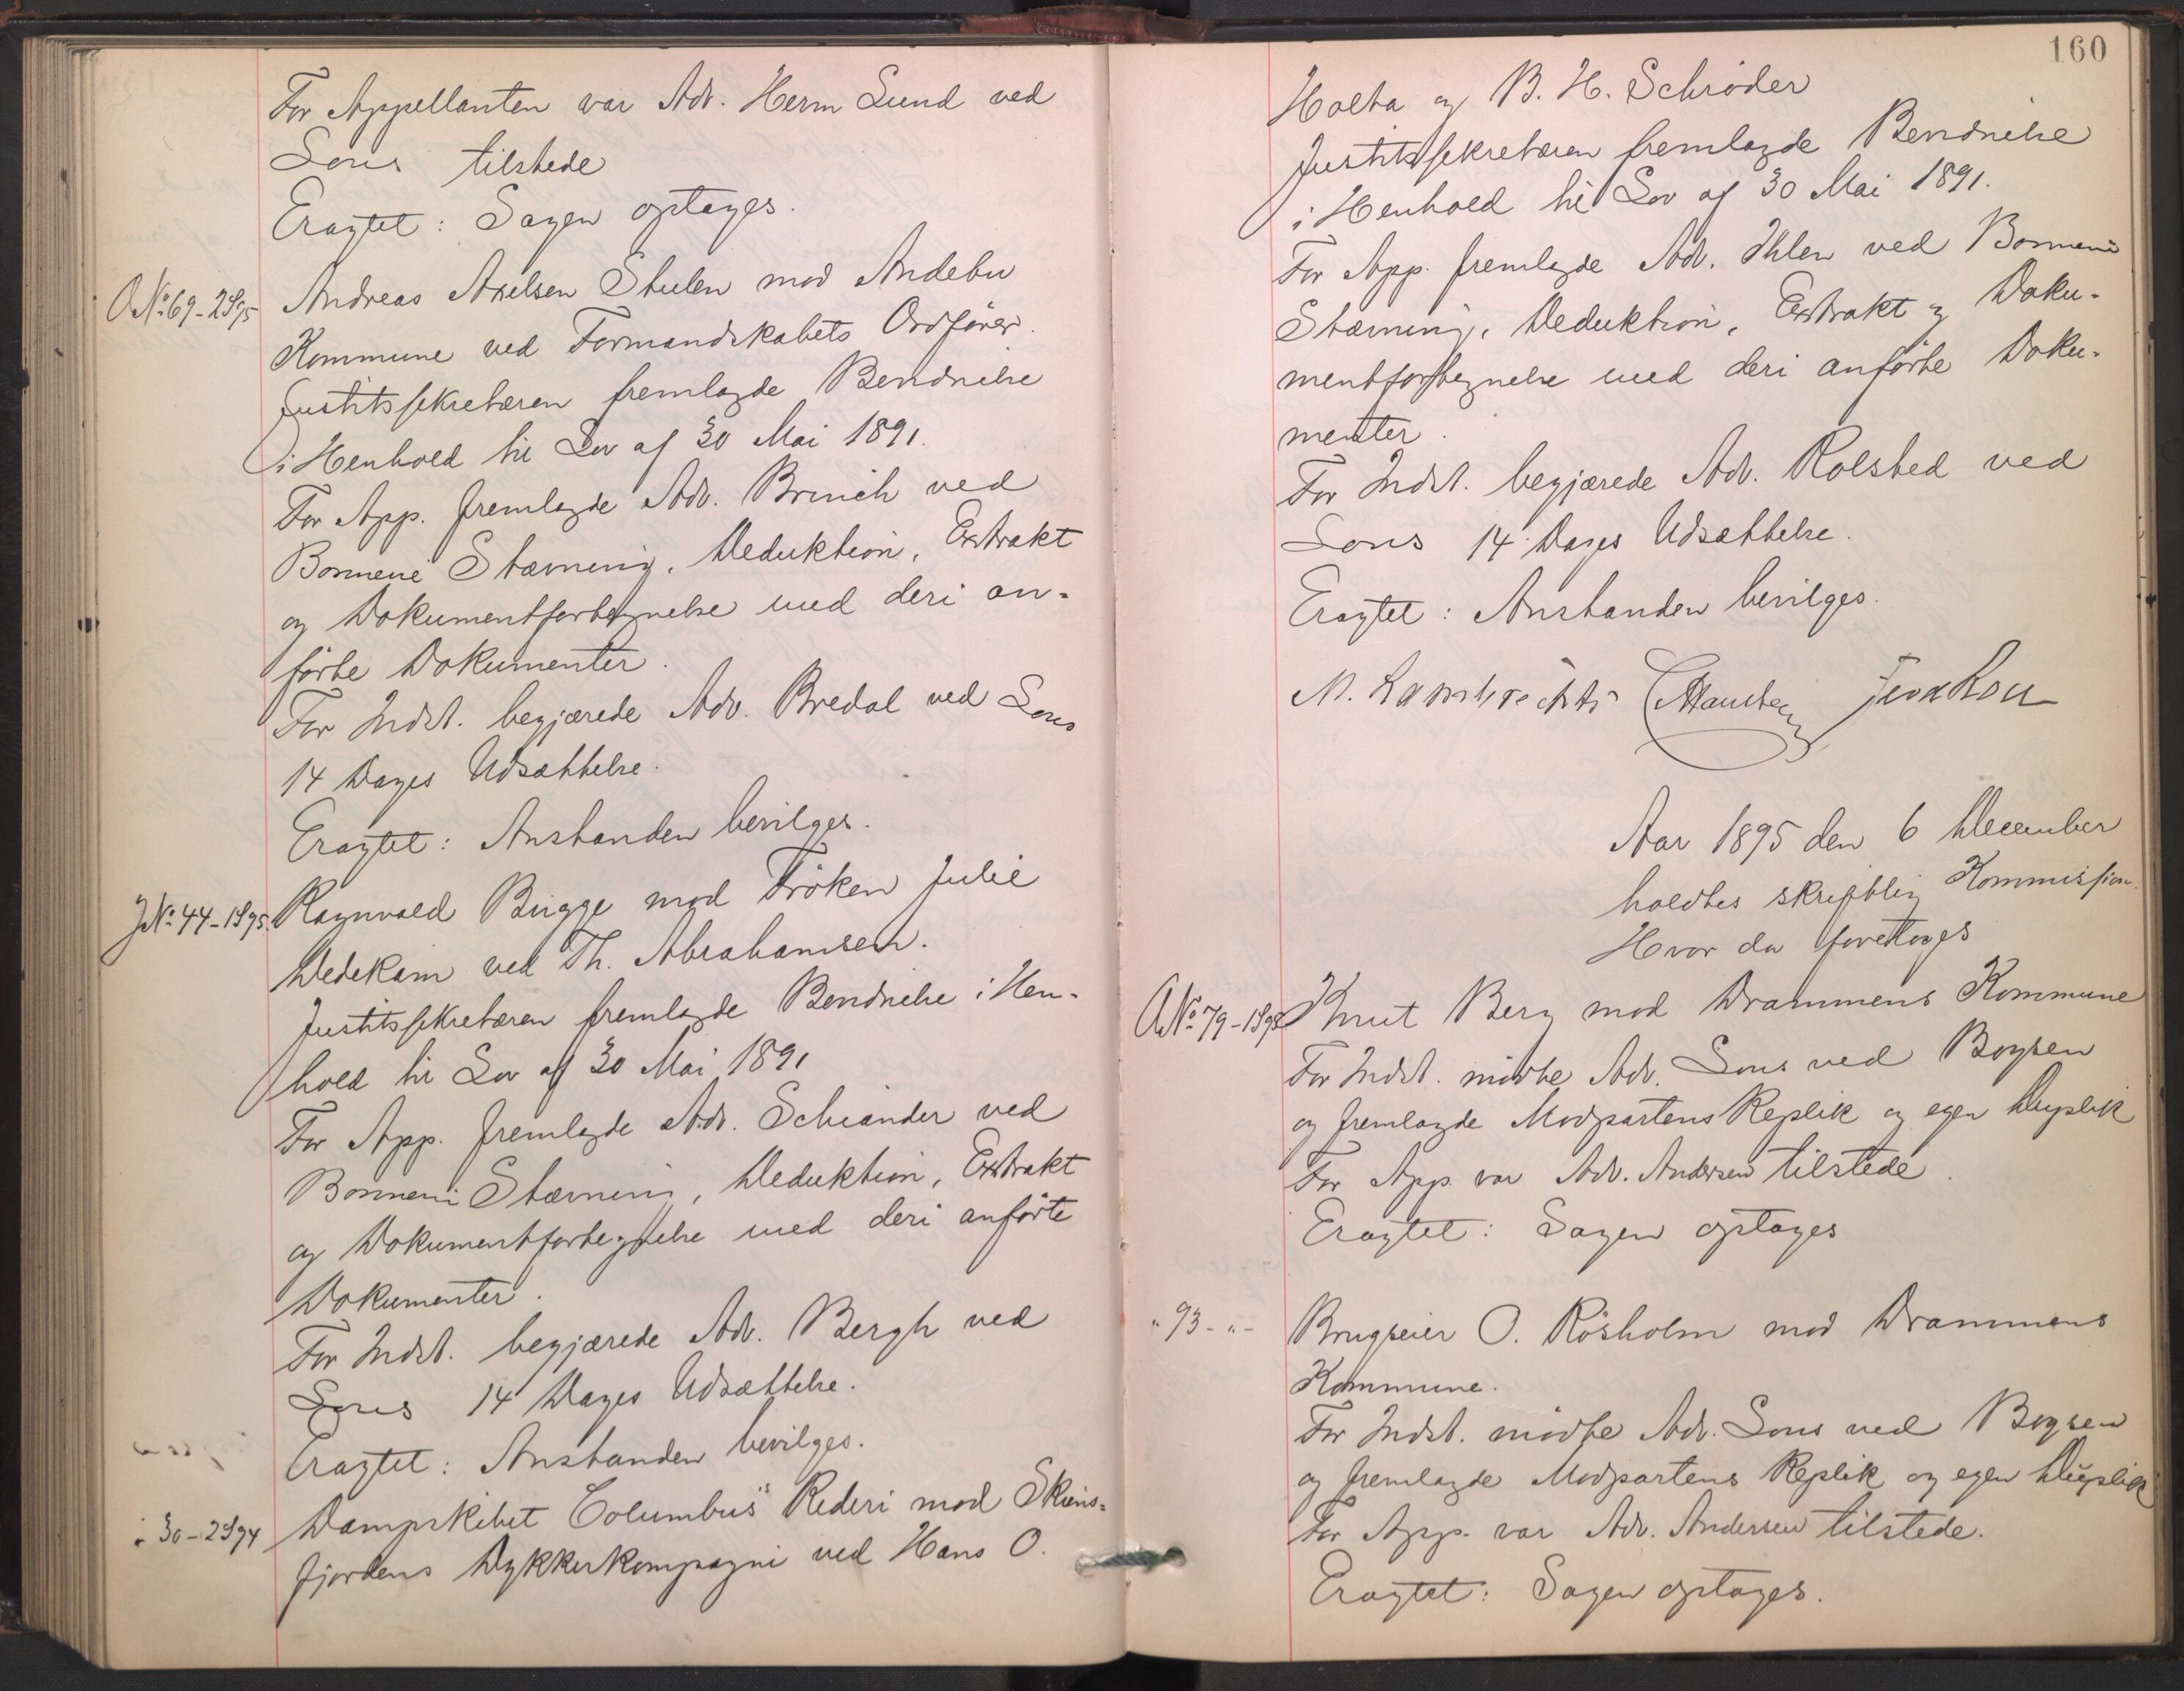 For Appellanten var Adv. Herm Lund ved
Lous tilstede
Eragtet: Sagen optages.
A No. 69-2S95 Andreas Axelsen Stulen mod Andebu
Kommune ved Formandskabets Ordfører.
Justitssekretæren fremlagde Berammelse
i Henhold til Lov af 30 Mai 1891.
For App. fremlagde Adv. Brinch ved
Bonnevi Stævning, Deduktion, Extrakt
og Dokumentfortegnelse med deri an-
førte Dokumenter.
For Indst. begjærede Adv. Bredal ved Lous
14 Dages Udsættelse.
Eragtet: Anstanden bevilges.
J No. 44-1S95. Ragnvald Bugge mod Frøken Julie
Dedekam ved Th. Abrahamsen.
Justitssekretæren fremlagde Berammelse i Hen-
hold til Lov af 30 Mai 1891
For App. fremlagde Adv. Schiander ved
Bonnevi Stævning, Deduktion, Extrakt
og Dokumentfortegnelse med deri anførte
Dokumenter.
For Indst. begjærede Adv. Bergh ved
Lous 14 Dages Udsættelse.
Eragtet: Anstanden bevilges.
" 30-2S94 Dampskibet "Columbus" Rederi mod Skiens-
fjordens Dykkerkompagni ved Hans O.
160
Holta og B. H. Schrøder
Justitssekretæren fremlagde Berammelse
i Henhold til Lov af 30 Mai 1891.
For App. fremlagde Adv. Ihlen ved Bonnevi
Stævning, Deduktion, Extrakt og Doku-
mentfortegnelse med deri anførte Doku-
menter.
For Indst. begjærede Adv. Rolsted ved
Lous 14 Dages Udsættelse.
Eragtet: Anstanden bevilges.
M. Lambrechts
Aar 1895 den 6 December
holdtes skriftlig Kommission.
Hvor da foretoges
A No. 79-1S95 Knut Berg mod Drammens Kommune
For Indst. mødte Adv. Lous ved Boysen
og fremlagde Modpartens Replik og egen Duplik
For App. var Adv. Andersen tilstede.
Eragtet: Sagen optages
" 93 - " - Brugseier O. Røsholm mod Drammens
Kommune.
For Indst. mødte Adv. Lous ved Boysen
og fremlagde Modpartens Replik og egen Duplik
For App. var Adv. Andersen tilstede.
Eragtet: Sagen optages.